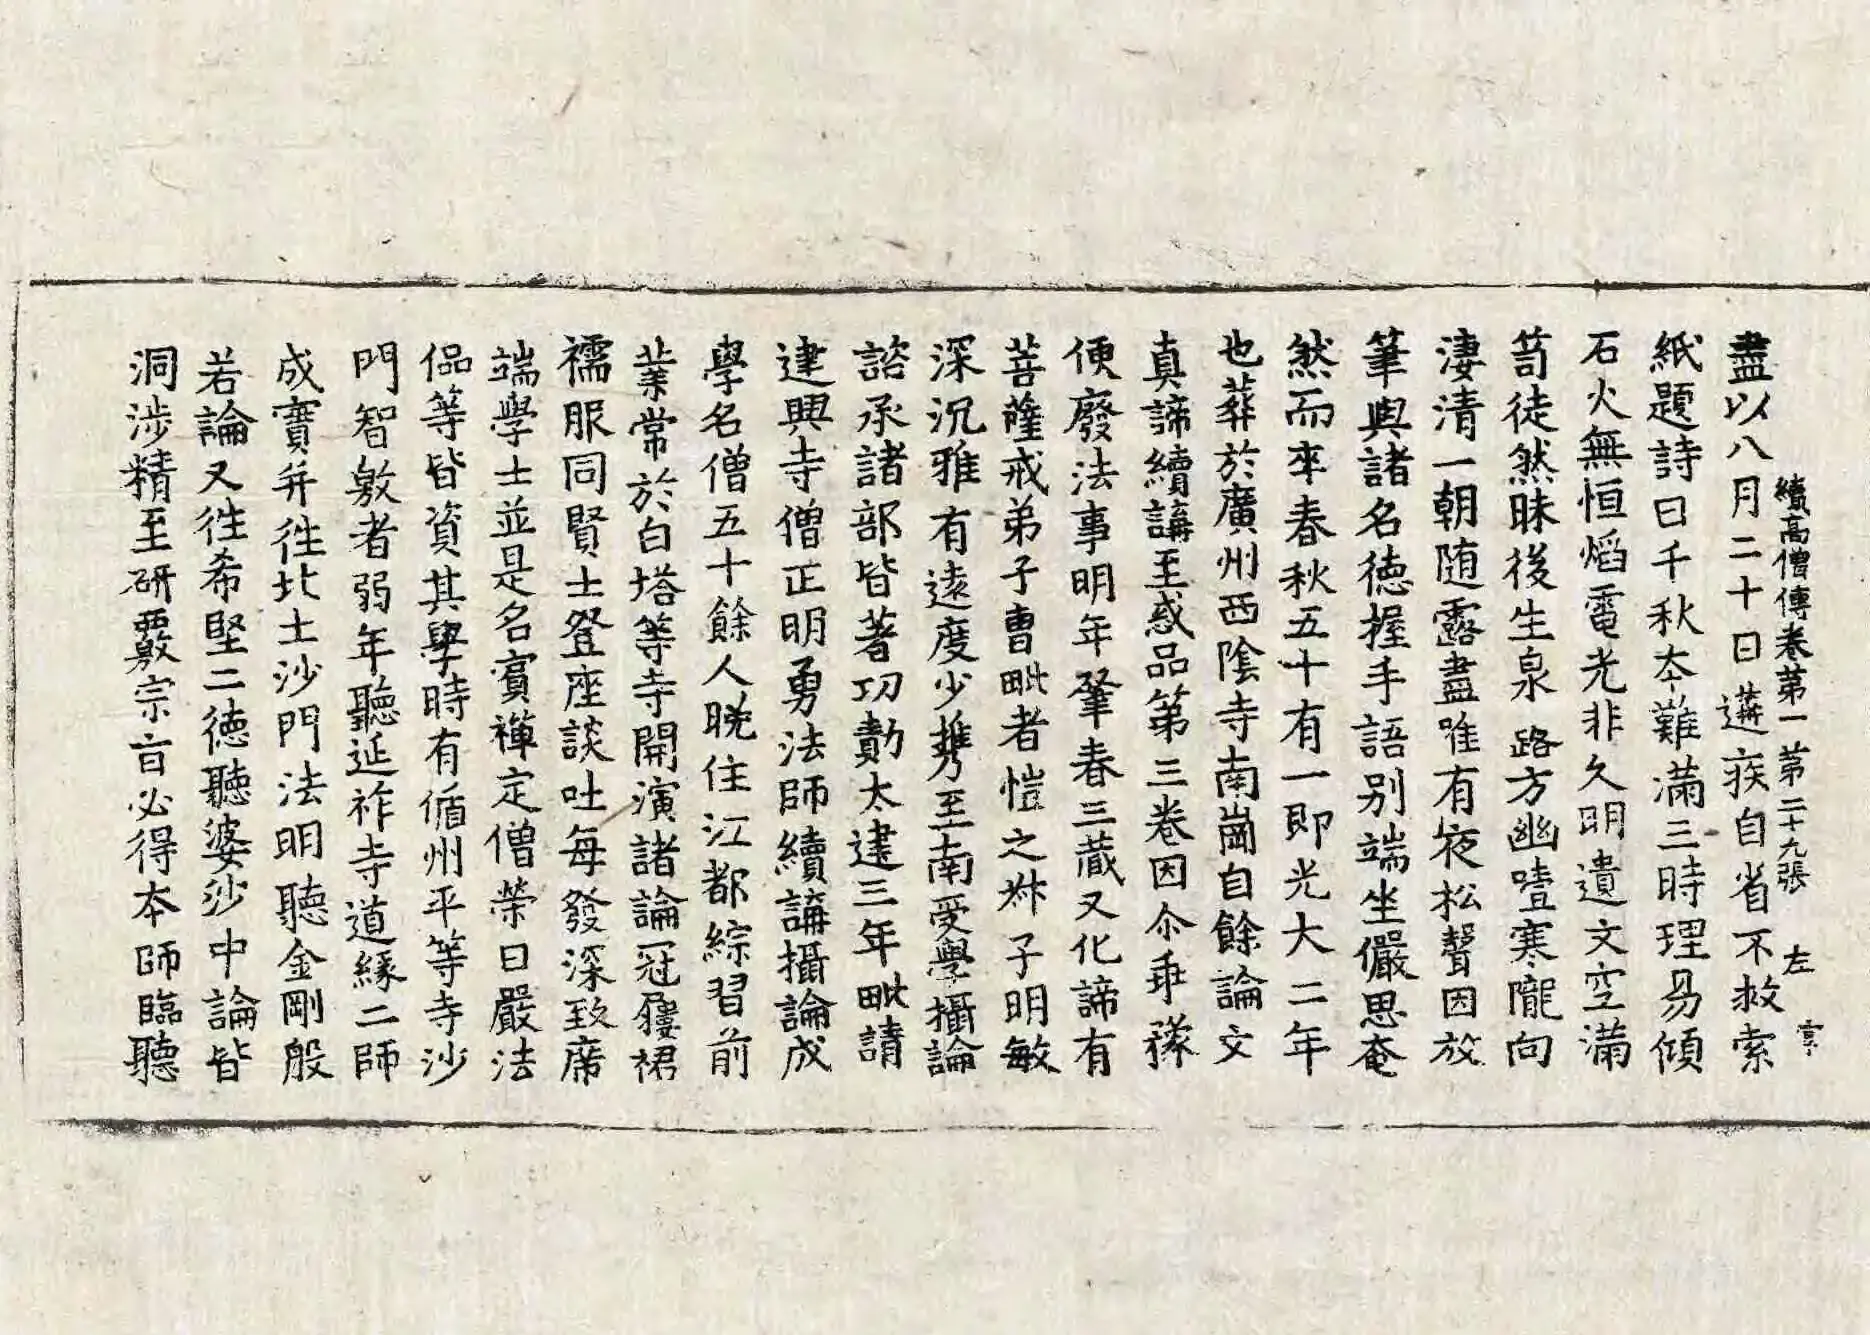 續高僧傳卷第一 第二十九張 左
盡以八月二十日遘疾自省不救索
紙題詩曰千秋夲難滿三時理易傾
石火無恒焰電光非久明遺文空滿
笥徒然昧後生泉路方幽噎寒隴向
淒清一朝随露盡唯有夜松聲因放
筆與諸名德握手語别端坐儼思奄
然而卒春秋五十有一即光大二年
也葬於廣州西陰寺南崗自餘論文
真諦續講至惑品第三卷因尒乖豫
便廢法事明年肇春三藏又化諦有
菩薩戒弟子曹毗者愷之叔子明敏
深沉雅有遠度少擕至南受學攝論
諮承諸部皆著功勣太建三年毗請
建興寺僧正明勇法師續講攝論成
學名僧五十餘人晚住江都綜習前
業常於白塔等寺開演諸論冠屨裙
襦服同賢士登座談吐每發深致席
端學士並是名賓禪定僧榮曰嚴法
偘等皆資其學時有循州平等寺沙
門智敫者弱年聽延祚寺道緣二師
成實并往北土沙門法明聽金剛般
若論又往希堅二德聽婆沙中論皆
洞涉精至研覈宗旨必得夲師臨聽